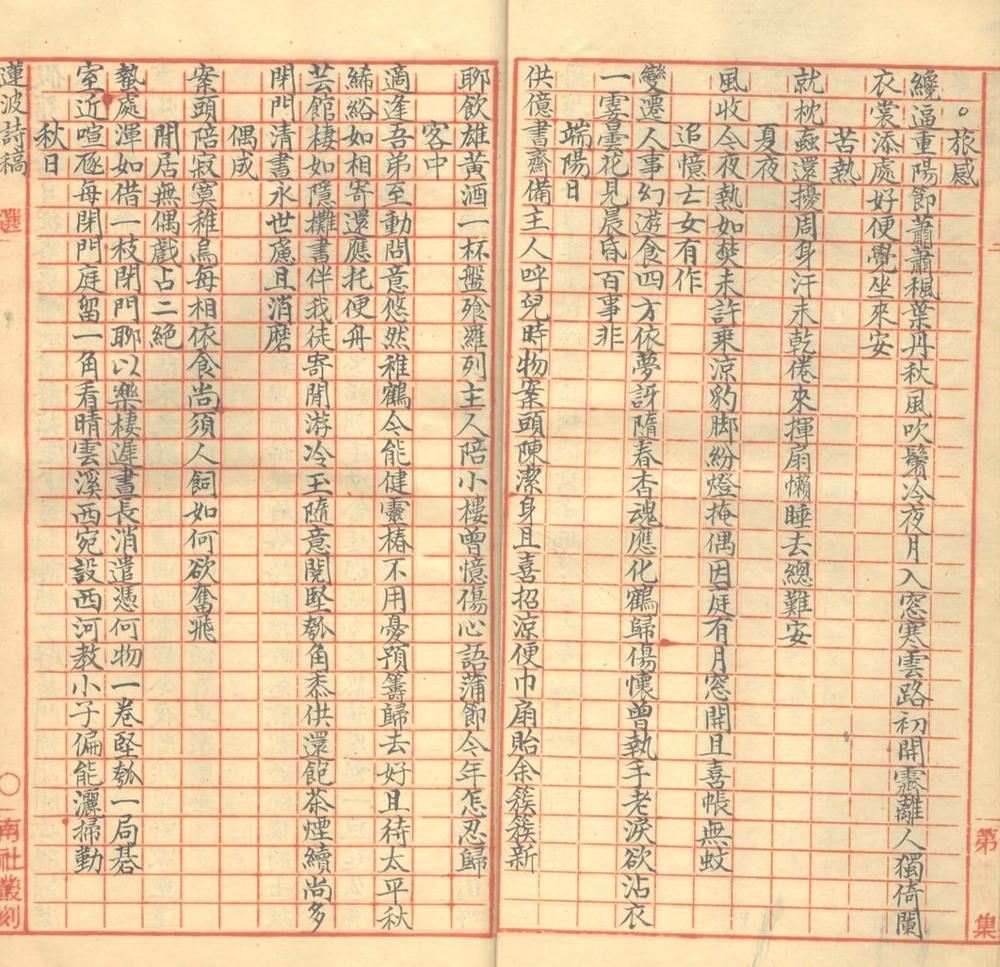 第 集
。旅感
纔逼重陽節蕭蕭楓葉丹秋風吹鬢冷夜月入窓寒雲路初開霽離人獨倚闌
衣裳添處好便覺坐來安
苦熱
就枕蟲還擾周身汗未乾倦來揮扇懶睡去總難安
夏夜
風收今夜熱如焚未許乗涼豹脚紛燈掩偶因庭有月窓開且喜帳無蚊
追憶士女有作
變遷人事幻遊食四方依夢訝隨春杏魂應化鶴歸傷懷曾執手老淚欲沾衣
一霎曇花見晨昏百事非
端陽日
供億書齋備主人呼兒時物案頭陳潔身且喜招涼便巾扇貽余簇簇新
聊飲雄黃酒一杯盤飱羅列主人陪小樓曾憶傷心語蒲節今年怎忍歸
客中
適逢吾弟至動問意悠然稚鶴今能健靈椿不用憂預籌歸去好且待太平秋
絺綌如相寄還應托便舟
芸館棲如隱攤書伴我徒寄閒游冷玉隨意閱堅瓠角黍供還飽茶煙續尚多
閉門清晝永世慮且消磨
偶成
案頭陪寂寞稚烏每相依食尚須人飼如何欲奮飛
閒居無偶戲占二絕
蟄處渾如借一枝閉門聊以樂棲遲晝長消遣憑何物一卷堅瓠一局碁
室近喧豗每閉門庭留一角看晴雲溪西宛設西河教小子偏能灑掃勤
秋日
蓮波詩稿 選 〇 南社叢刻